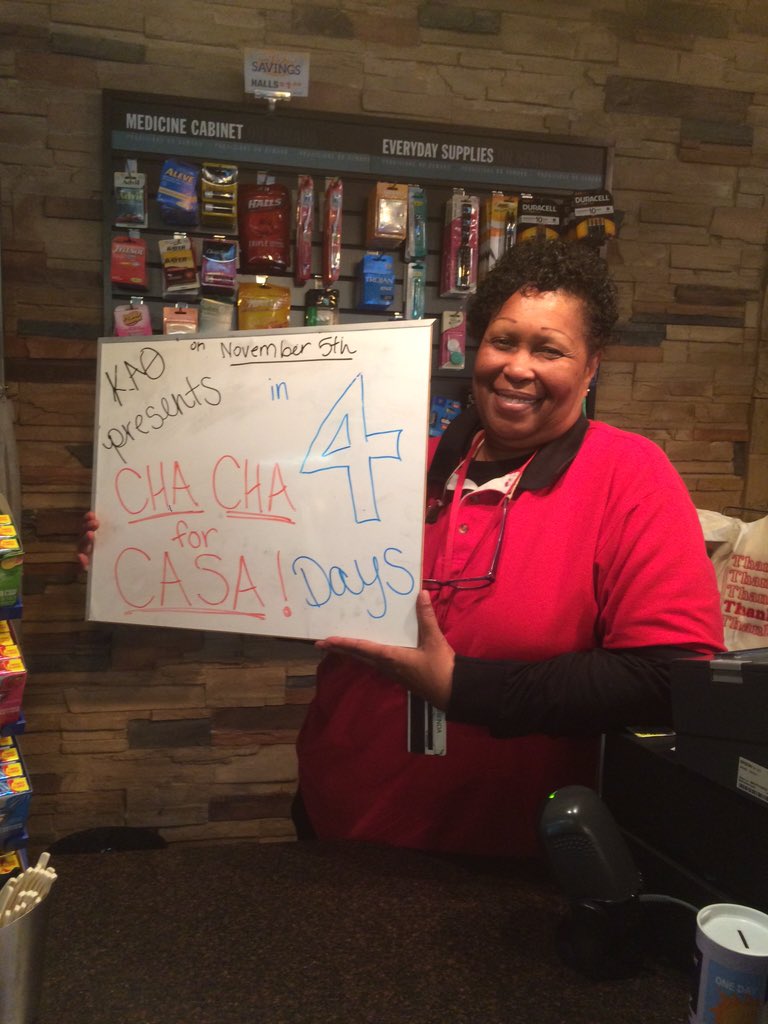 SAVINGS
HALLS
MEDICINE CABINET
EVERYDAY SUPPLIES
Advil
ALEVE
HALLS
DURACELL
DURACELL
TYLENOL
TROJAN
KAΘ on November 5th
presents in 4
CHA CHA
for
CASA! Days
Than
Than
Than
Thank
Thank
ONE DAY